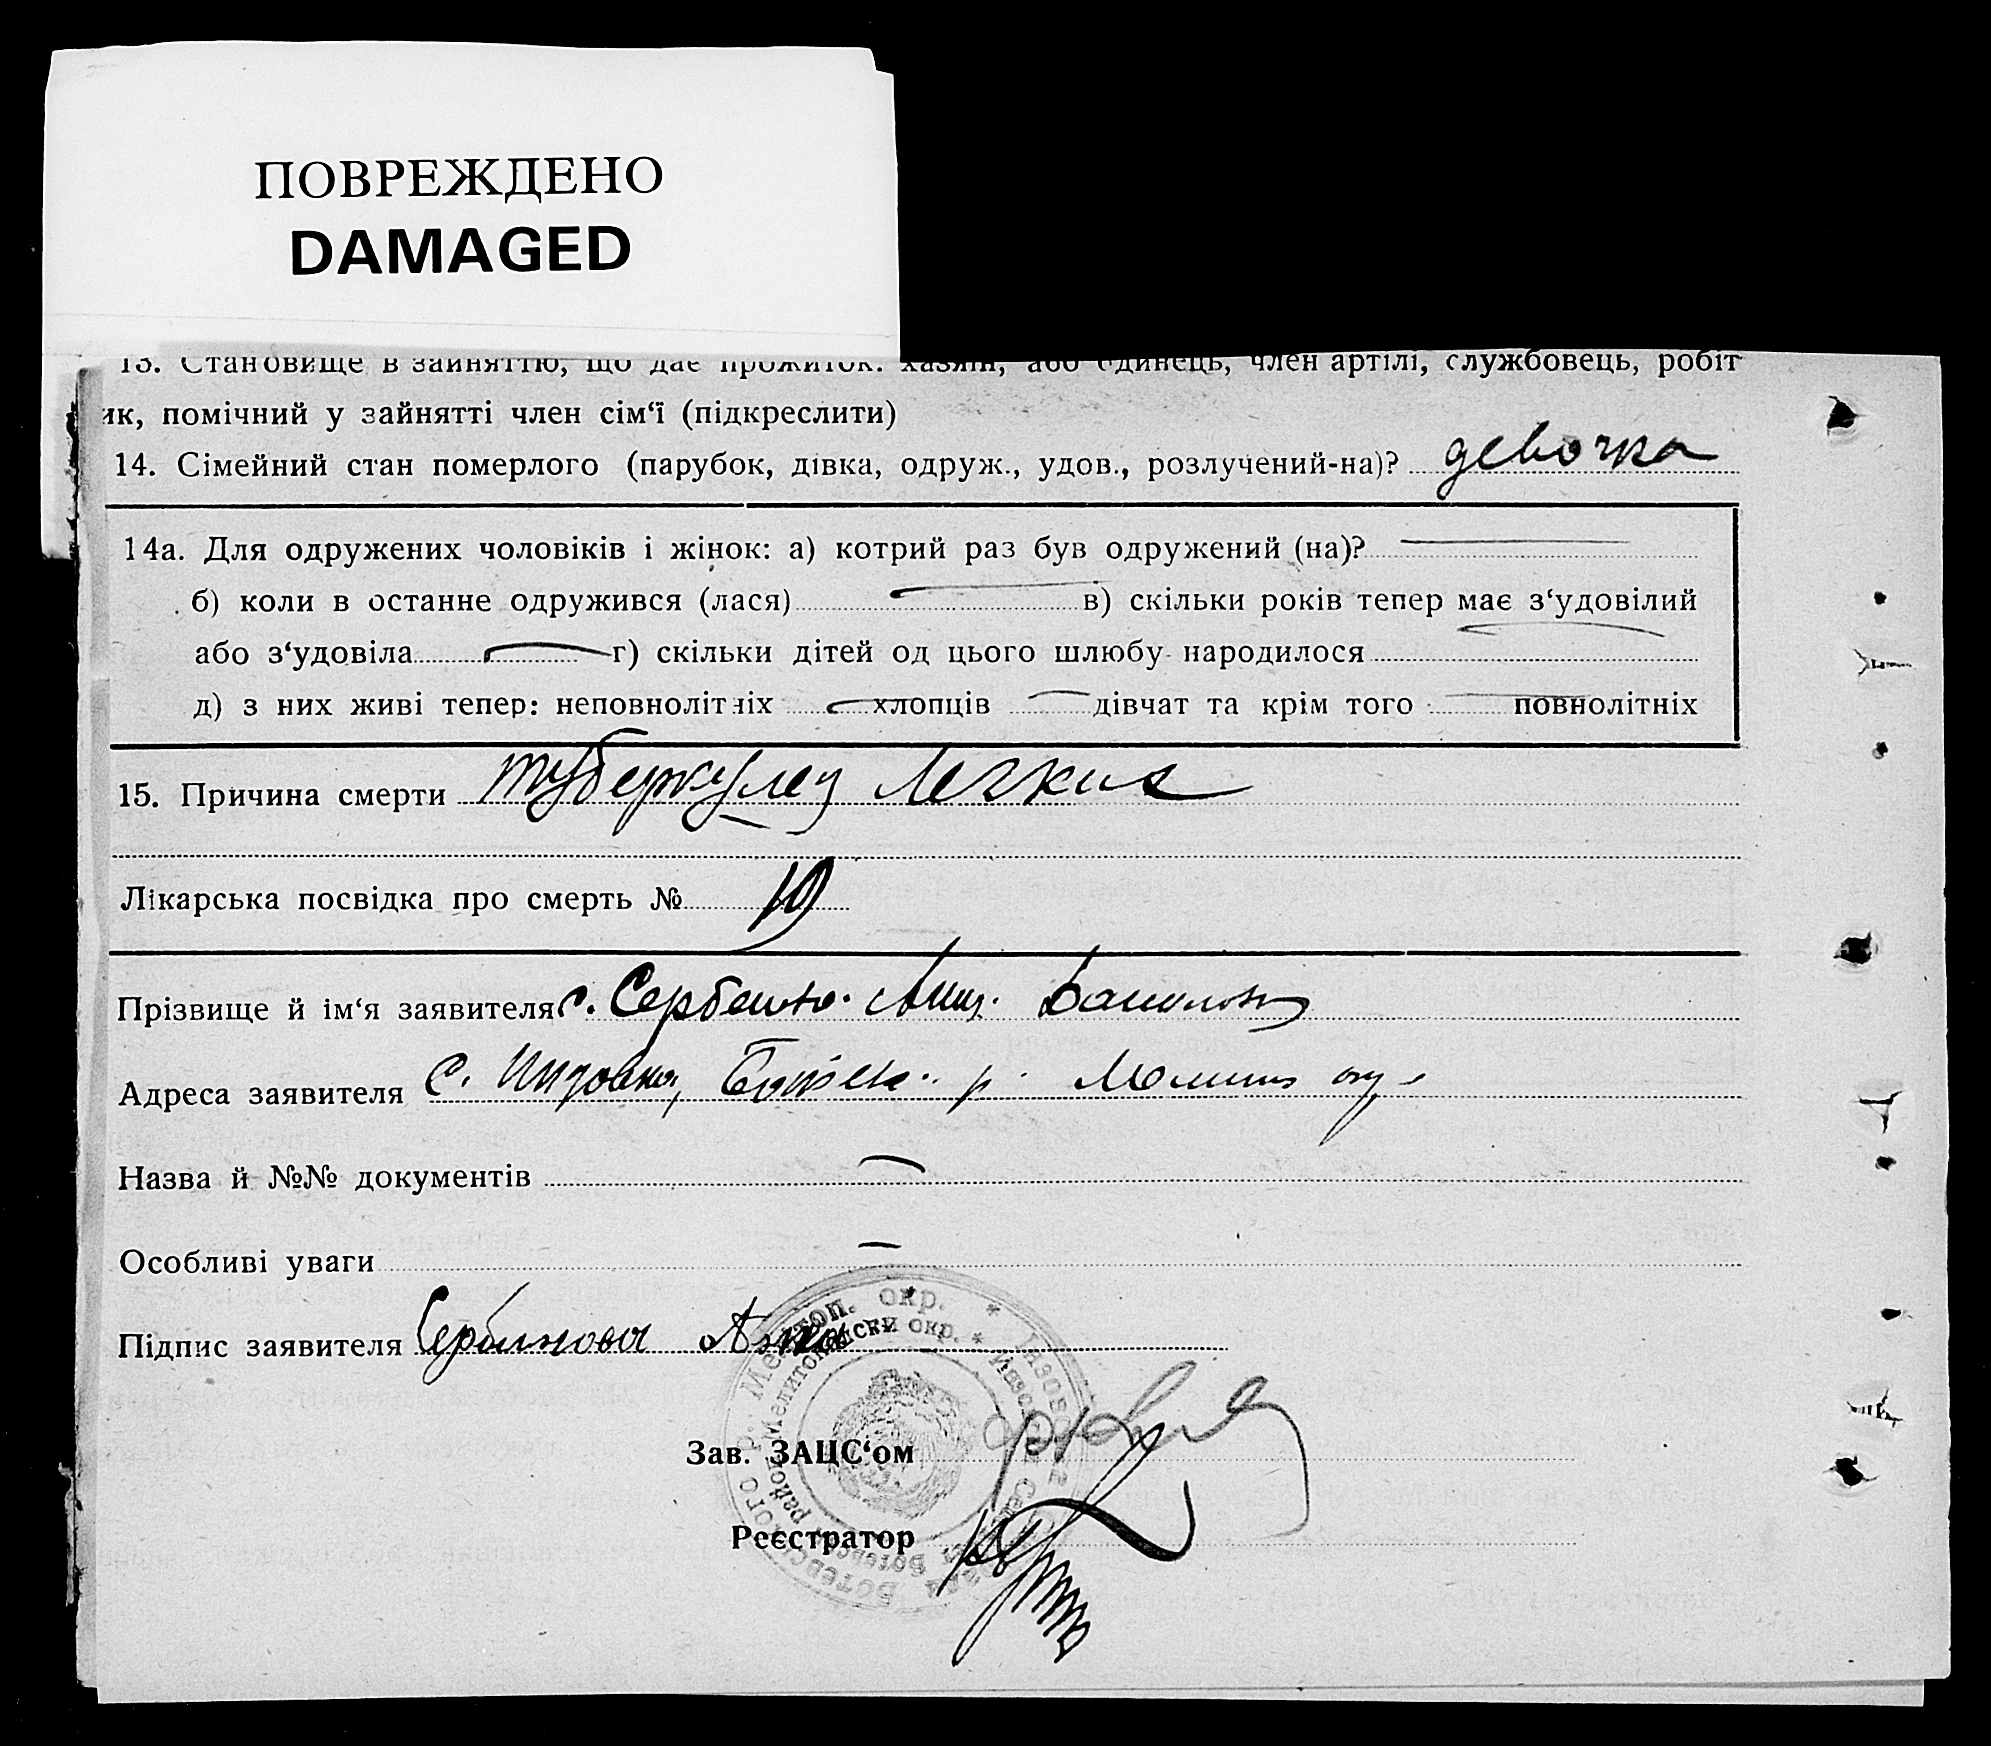 ПОВРЕЖДЕНО
DAMAGED
13. Становище в зайняттю, що дає прожиток: хазяїн, або одинець, член артілі, службовець, робіт
ик, помічний у зайнятті член сім‘ї (підкреслити)
14. Сімейний стан померлого (парубок, дівка, одруж., удов., розлучений-на)? девочка
14а. Для одружених чоловіків і жінок: а) котрий раз був одружений (на)?
б) коли в останне одружився (лася) в) скільки років тепер має з‘удовілий
або з‘удовіла г) скільки дітей од цього шлюбу народилося
д) з них живі тепер: неповнолітніх — хлопців — дівчат та крім того — повнолітніх
15. Причина смерти туберкулез легких
Лікарська посвідка про смерть № 19
Прізвище й ім‘я заявителя
Адреса заявителя с.
Назва й №№ документів —
Особливі уваги —
Підпис заявителя
Мелітоп. окр. *
окр. *
Зав. ЗАЦС‘ом
Реєстратор